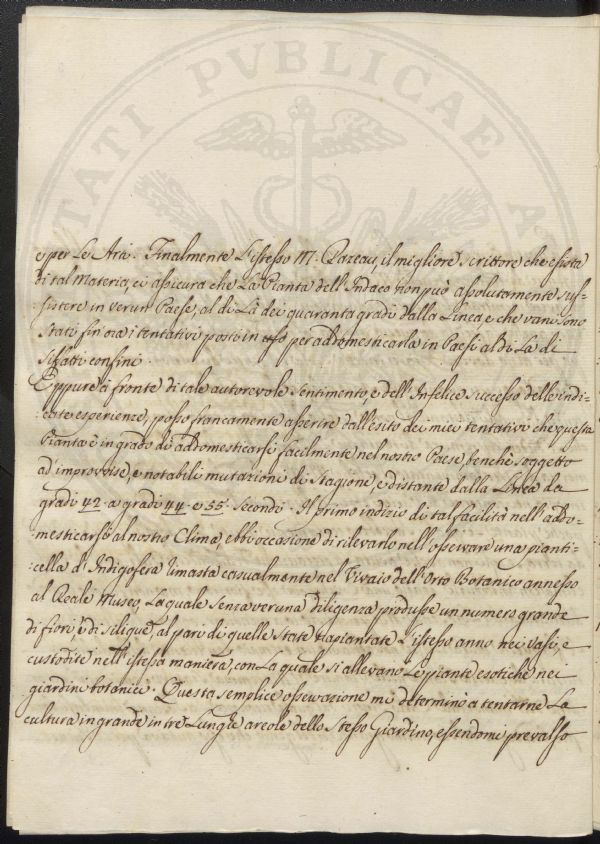 PUBLICAE
e per Le Arti. Finalmente L'istesso M. Qazeau, il migliore scrittore che esista
di tal Materia, ci assicura che La Pianta dell'Indaco non può assolutamente sus=
:sistere in verun Paese, al di Là dei quaranta gradi dalla Linea e che vani sono
stati fin'ora i tentativi posti in uso per addomesticarla in Paesi al di La di
Siffatti confini.
Eppure a fronte di tale autorevole Sentimento, e dell'Infelice successo delle indi=
:cate esperienze, posso francamente asserire dall'esito dei miei tentativi che questa
Pianta è in grado di addomesticarsi facilmente nel nostro Paese, benchè soggetto
ad improvvise, e notabili mutazioni di Stagione, e distante dalla Linea da
gradi 42. a gradi 44. e 55. Secondi. Il primo indizio di tal facilità nell'addo=
:mesticarsi al nostro Clima, ebbi occasione di rilevarlo nell'osservare una pianti=
:cella d'Indigofera rimasta casualmente nel Vivaio dell'Orto Botanico annesso
al Reale Museo, La quale senza veruna diligenza produsse un numero grande
di fiori, e di silique, al pari di quelle State trapiantate L'istesso anno nei vasi, e
custodite nell'istessa maniera, con La quale si allevano Le piante esotiche nei
giardini botanici. Questa semplice osservazione mi determinò a tentarne La
cultura in grande in tre Lunghe areole dello Stesso Giardino, essendomi prevalso